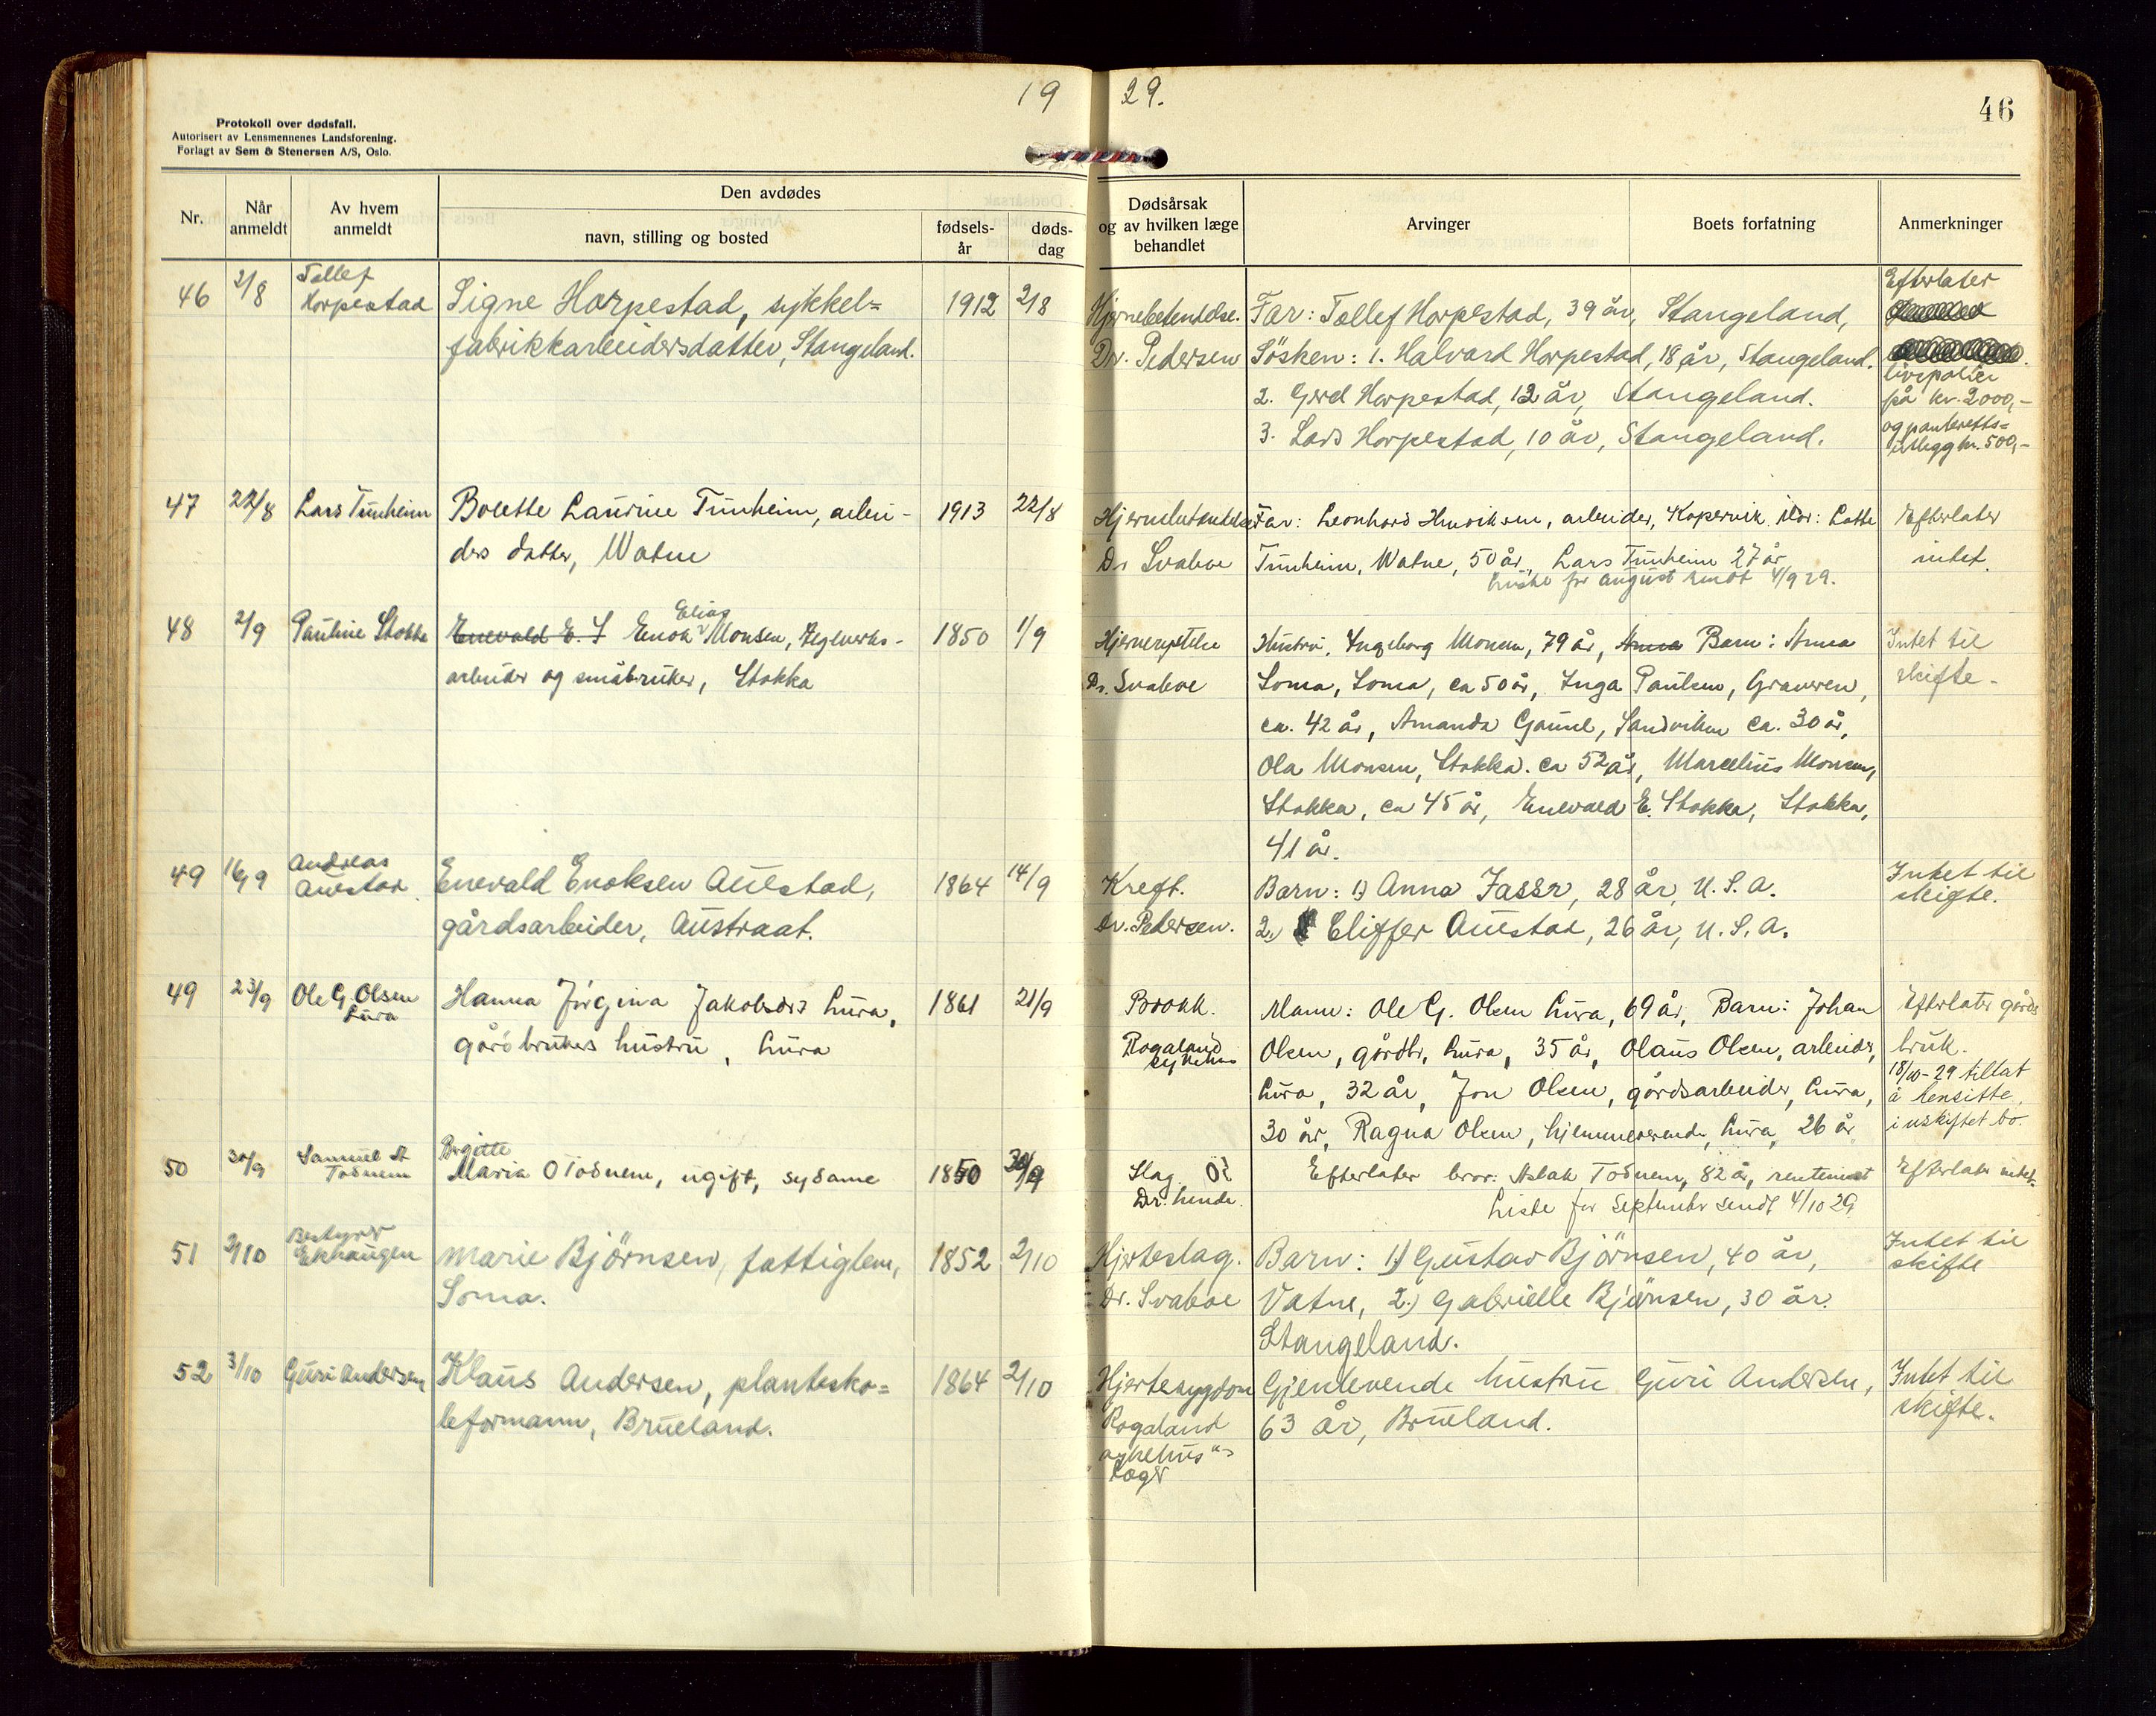 19 29.
46
Protokoll over dødsfall.
Autorisert av Lensmennenes Landsforening.
Forlagt av Sem & Stenersen A/S, Oslo.
Nr.
Når anmeldt
Av hvem anmeldt
Den avdødes
navn, stilling og bosted
fødsels-år
døds-dag
Dødsårsak og av hvilken læge behandlet
Arvinger
Boets forfatning
Anmerkninger
46 2/8 Tollef Horpestad
Signe Horpestad, sykkel=
fabrikkarbeidersdatter, Stangeland.
1912 2/8
Hjernebetendelse.
Dr. Pedersen
Far: Tollef Horpestad, 39 år, Stangeland,
Søsken: 1. Halvard Horpestad, 18 år, Stangeland.
2. Gerd Horpestad, 12 år, Stangeland.
3. Lars Horpestad, 10 år, Stangeland.
Efterlater
livspolise
på kr. 2000,-
og panteretts=
utlegg kr. 500,-
47 22/8 Lars Tunheim
Bolette Laurine Tunheim, arbei-
ders datter, Watne
1913 22/8
Hjernebetendelse
Dr Svaboe
Far: Leonhard Henriksen, arbeider, Kopervik Mor: Lotte
Tunheim, Watne, 50 år, Lars Tunheim 27 år
Liste for august sendt 4/9 29.
Efterlater
intet.
48 2/9 Pauline Stokka
Enevald E. S Enok Elias Monsen, Teglverks-
arbeider og småbruker, Stokka
1850 1/9
Hjernerystelse
Dr. Svaboe
Hustru, Ingeborg Monsen, 79 år, Anna Barn: Anna
Soma, Soma, ca 50 år, Inga Paulsen, Graveren,
ca. 42 år, Amanda Gausel, Sandviken ca. 30 år,
Ola Monsen, Stokka. ca 52 år, Marcelius Monsen,
Stokka, ca 45 år, Enevald E. Stokka, Stokka,
41 år.
Intet til
skifte.
49 16/9 Andreas Austad
Enevald Enoksen Auestad,
gårdsarbeider, Austraat.
1864 14/9
Kreft.
Dr. Pedersen.
Barn: 1) Anna Jasser, 28 år, U.S.A.
2.) Eliffer Auestad, 26 år, U.S.A.
Intet til
skifte.
49 23/9 Ole G. Olsen Lura
Hanna Jørgina Jakobsdrs Lura,
gårdbrukers hustru, Lura
1861 21/9
Brokk.
Rogaland
sykehus
Mann: Ole G. Olsen Lura, 69 år, Barn: Johan
Olsen, gårdbr, Lura, 35 år, Olaus Olsen, arbeider,
Lura, 32 år, Jon Olsen, gårdsarbeider, Lura,
30 år, Ragna Olsen, hjemmeværende, Lura, 26 år
Efterlater gårds
bruk.
18/10-29 tillat
å hensitte
i uskiftet bo.
50 30/9 Samuel A Todnem
Birgitte
Maria O Todnem, ugift, sydame
1850 30/9
Slag.
Dr. Lende.
Efterlater bror: Aslak Todnem, 82 år, rentenist
Liste for September sendt 4/10 29
Efterlater intet.
51 2/10 Bestyrer Ekhaugen
Marie Bjørnsen, fattiglem,
Soma.
1852 2/10
Hjerteslag.
Dr. Svaboe
Barn: 1.) Gustav Bjørnsen, 40 år,
Vatne, 2.) Gabrielle Bjørnsen, 30 år.
Stangeland.
Intet til
skifte
52 3/10 Guri Andersen
Klaus Andersen, plantesko=
leformann, Brueland.
1864 2/10
Hjertesygdom
Rogaland
sykehus"
Læger
Gjenlevende hustru Guri Andersen,
63 år, Brueland.
Intet til
skifte.